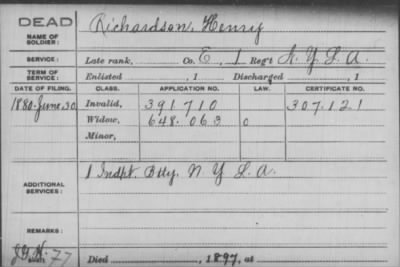 DEAD
NAME OF SOLDIER: Richardson, Henry
SERVICE: Late rank, Co. E, 1 Reg't N. Y. L. A.
TERM OF SERVICE: Enlisted , 1 Discharged , 1
DATE OF FILING. CLASS. APPLICATION NO. LAW. CERTIFICATE NO.
1880. June, 30 Invalid, 391 710 307.121
Widow, 648.063 0
Minor,
ADDITIONAL SERVICES: 1 Indpt Btty. N. Y. L. A.
REMARKS:
77 Died , 1897, at